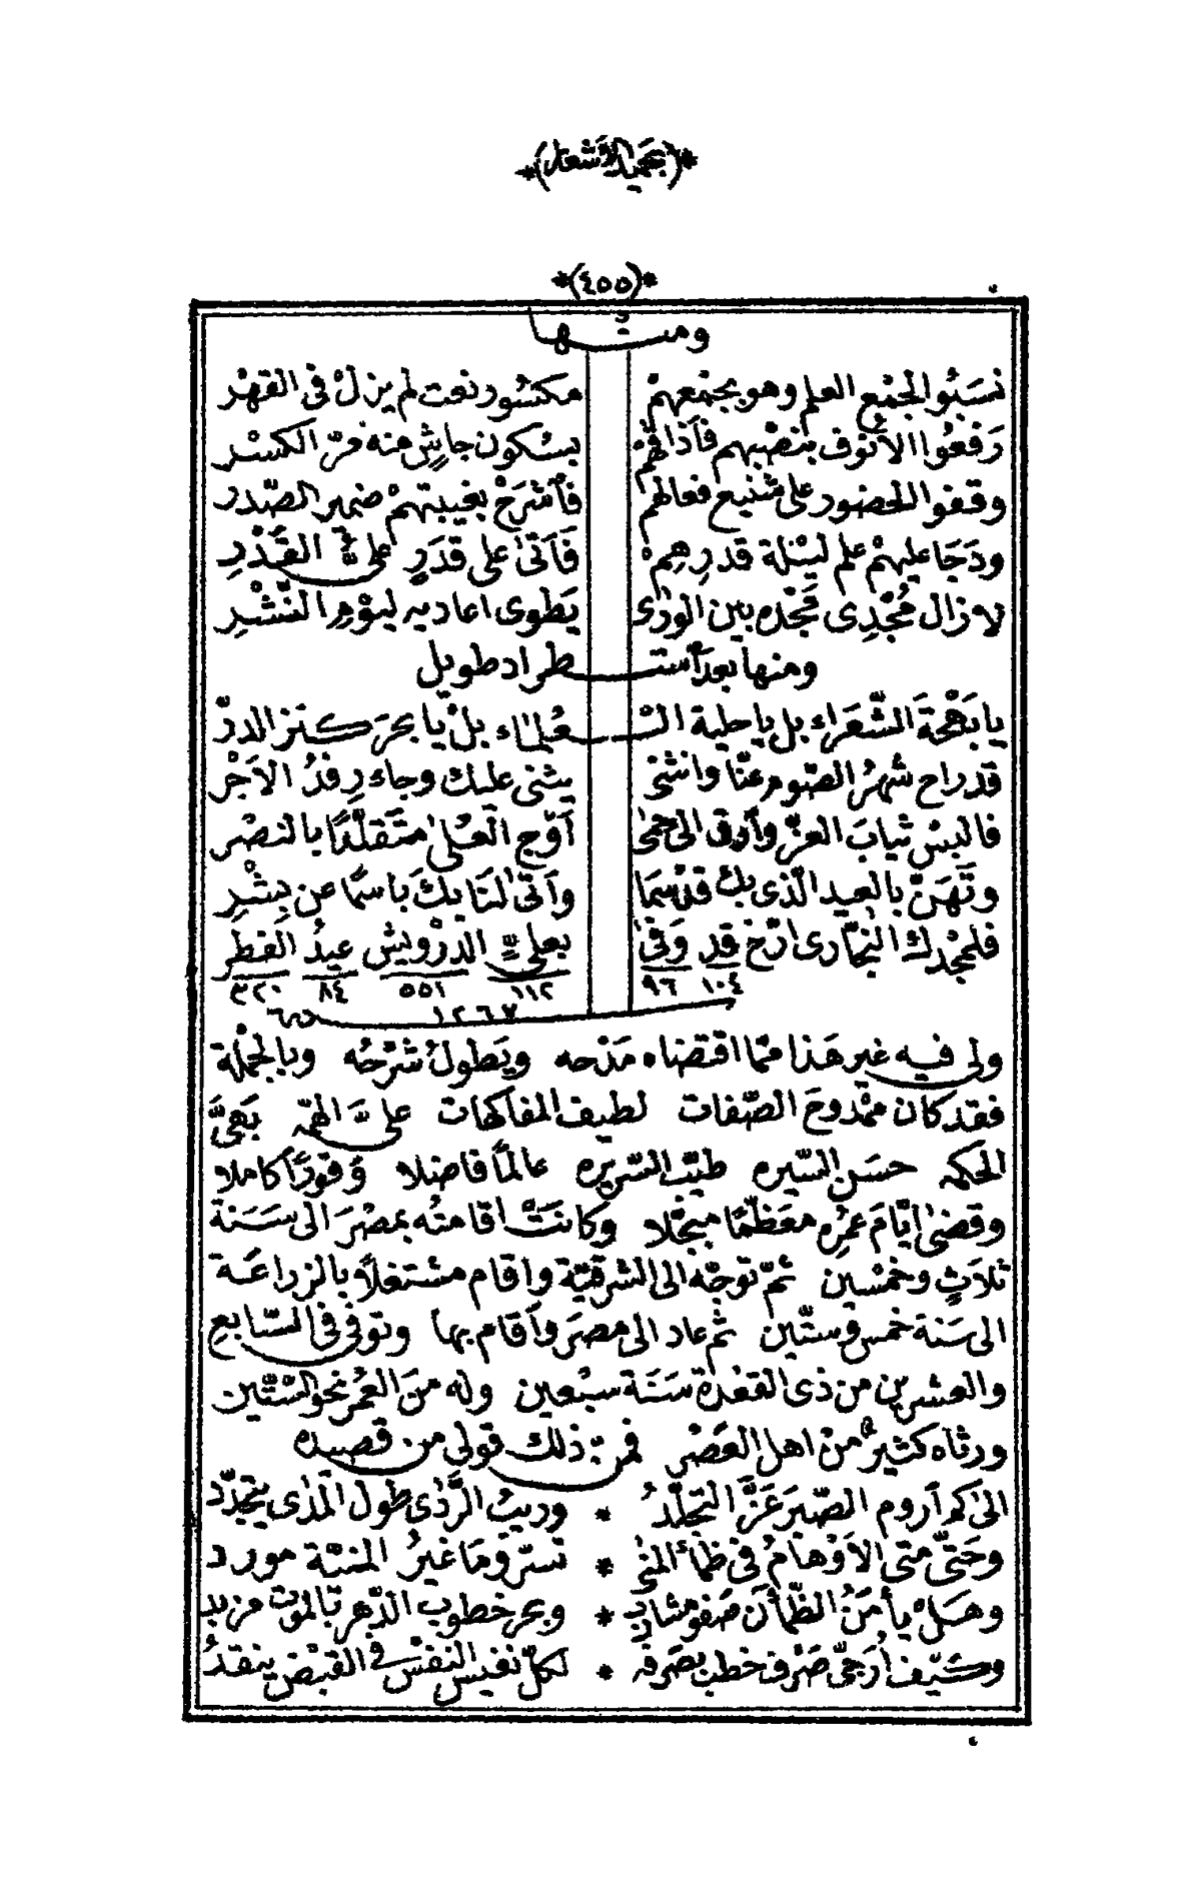 *(بحميد الأشعار)*
*(٤٥٥)*
ومنها
نسَبُوا لجمْع العلم وهو بجمْعهمْ مكسُور نعت لم يزلْ فى القهْر
رَفعُوا الأنوف بنصْبهم فأذاقهُمْ بسْكون جاش منه مرّ الكسْر
وقفوا الحضور على شنيع فعالهمْ فأشرَحْ بغيبتهمْ ضمير الصّدر
ودَجَا عليهمْ علم ليْلة قدرِهِمْ فَأتىٰ على قدَرٍ علىُّ القَدْرِ
لا زال مُجْدِى مَجْده بين الورٰى يَطوى اعاديه ليوْمِ النّشْرِ
ومنها بعد أستطراد طويل
يا بَهْجةَ الشّعَراء بل يا حلية الْعُلماء بلْ يا بحرَ كنز الدرّ
قد راح شهرُ الصّوم عنّا وانثنىٰ يثنى عليك وجاء رِفدُ الاَجْر
فالبسْ ثيابَ العزّ وأرقى الى حمىٰ أوّج العُلىٰ متَقلّدًا بالنصْر
وتَهَنّ بالعيد الّذى بك قدْ سمَا وأتىٰ لنَا بكَ باسمًا عن بِشْرِ
فلمجْدك النجّارى ارّخ قد وَفىٰ بعلىِّ الدرْويش عيدُ الفطر
١٠٤ ٩٦ ١١٢ ٥٥١ ٨٤ ٣٢٠
١٢٦٧
ولى فيه غير هَذا ممّا اقتضاه مَدْحه ويَطولُ شرْحُه وبالجمْلة
فقد كان ممْدوحَ الصّفات لطيف المفاكهات علىَّ الهمّه بَهىَّ
الحَكمه حسَن السّيره طيّب السّريره عالمًا فاضلا وَقورًا كاملا
وقضىٰ ايّامَ عمُرِه معَظّمًا مبجّلا وكانتْ اقامتُه بمصْرَ الى سَنة
ثلاثٍ وخمسْين ثمّ توجّه الى الشرقيّة واقام مشتغلًا بالزراعَة
الى سَنة خمس وستّين ثم عاد الى مصرَ وأقام بها وتوفى فى السّابعِ
والعشرين من ذى القعْدة سَنَة سبْعين وله منَ العُمْر نحو السّتّين
ورثاه كثيرٌ منْ اهل العَصْر فمنْ ذلك قولى من قصيده
الىٰ كم أروم الصّبرَ عَزَّ التجلّدُ * وريبُ الرَّدٰى طول المَدٰى يتجدّد
وحَتّىٰ متىٰ الاَوْهامُ فى ظمأ المنىٰ * تسرّ ومَا غيرُ المنيّة مورد
وهَلْ يأمَنُ الظّمأن صَفو مشارب * وبحر خطوب الدّهر بالموت مزبد
وكيف أرَجّى صَرْف خطب بصَرفه * لكلّ نفيس النفسْ فى القبْض ينقدُ